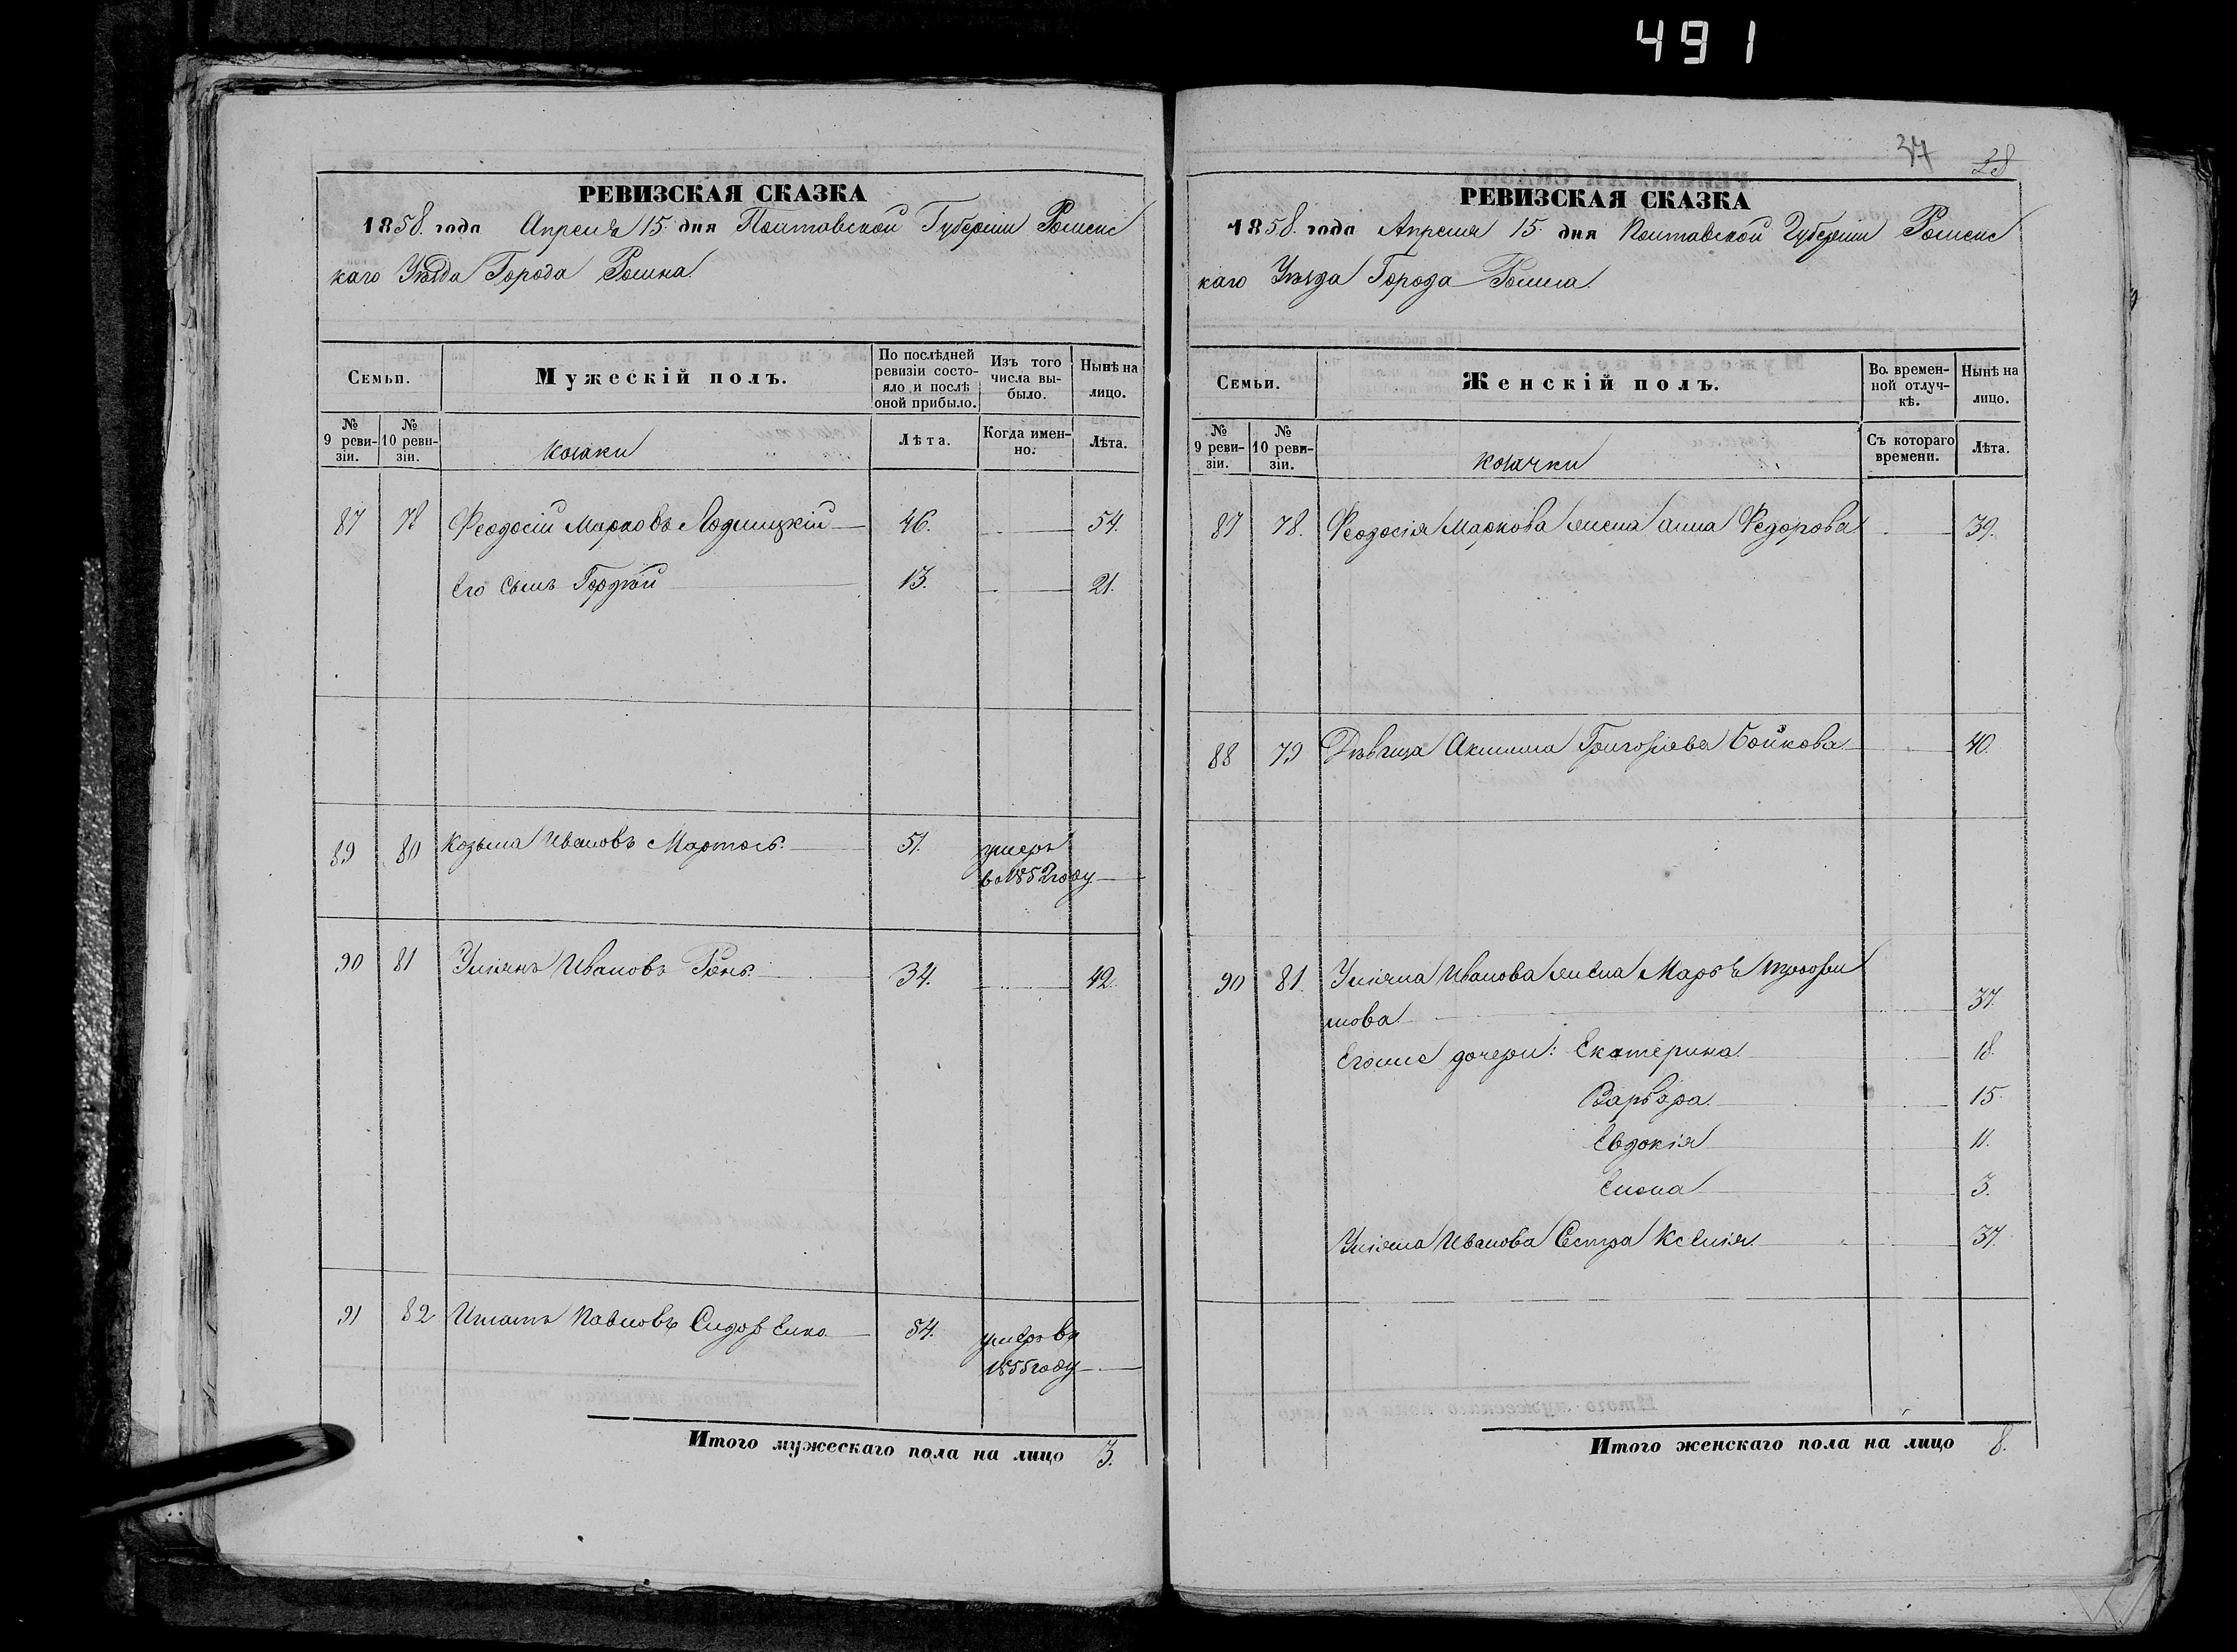 491
РЕВИЗСКАЯ СКАЗКА
1858. года Апреля 15. дня Полтавской Губерніи Роменс
каго Уѣзда Города Ромна.
Семьи.
Мужескій полъ.
По послѣдней ревизіи состо-
яло и послѣ оной прибыло.
Изъ того числа вы-
было.
Нынѣ на лицо.
№ 9 реви-
зіи.
№ 10 реви-
зіи.
козаки
Лѣта.
Когда имен-
но.
Лѣта.
87 78 Феодосій Марковъ Лодницкій 46. 54.
Его сынъ Гордѣй 13. 21.
89 80 Козьма Ивановъ Мартось. 51. умеръ
во 1852 году
90 81 Уліянъ Ивановъ Рѣнь. 34. 42.
91 82 Игнатъ Павловъ Сидоренко. 54. умеръ въ
1855 году
Итого мужескаго пола на лицо 3.
37 28
РЕВИЗСКАЯ СКАЗКА
1858. года Апреля 15. дня Полтавской Губерніи Роменс
каго Уѣзда Города Ромна.
Семьи.
Женскій полъ.
Во. времен-
ной отлуч-
кѣ.
Нынѣ на лицо.
№ 9 реви-
зіи.
№ 10 реви-
зіи.
козачки
Съ котораго времени.
Лѣта.
87 78. Феодосія Маркова жена Анна Федорова 39.
88 79 Дѣвица Акилина Григорьева Бойкова 40.
90 81. Уліяна Иванова жена Марѳа
нова 37.
Егоже дочери: Екатерина 18.
Варвара. 15.
Евдокія 11.
Елена 3.
Уліяна Иванова Сестра Ксенія. 37.
Итого женскаго пола на лицо 8.